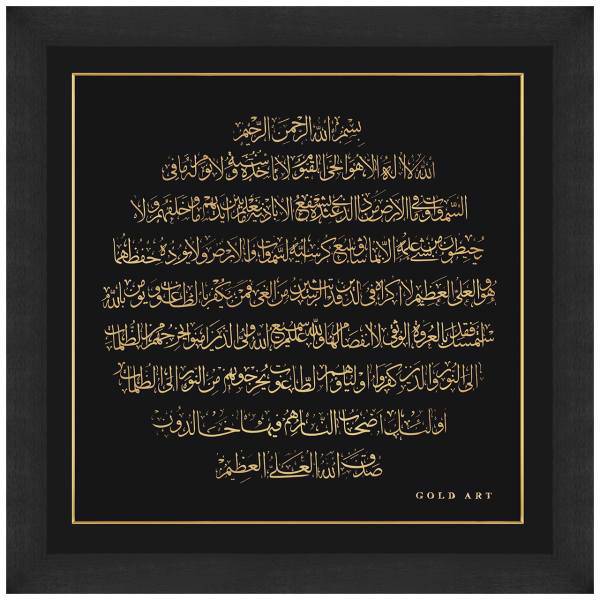 بسم الله الرحمن الرحيم
الله لا اله الا هو الحي القيوم لا تاخذه سنة ولا نوم له ما في
السموات وما في الارض من ذا الذي يشفع عنده الا باذنه يعلم ما بين ايديهم وما خلفهم ولا
يحيطون بشيء من علمه الا بما شاء وسع كرسيه السموات والارض ولا يؤده حفظهما
وهو العلي العظيم لا اكراه في الدين قد تبين الرشد من الغي فمن يكفر بالطاغوت ويؤمن بالله
فقد استمسك بالعروة الوثقى لا انفصام لها والله سميع عليم الله ولي الذين امنوا يخرجهم من الظلمات
الى النور والذين كفروا اولياؤهم الطاغوت يخرجونهم من النور الى الظلمات
اولئك اصحاب النار هم فيها خالدون
صدق الله العلي العظيم
GOLD ART